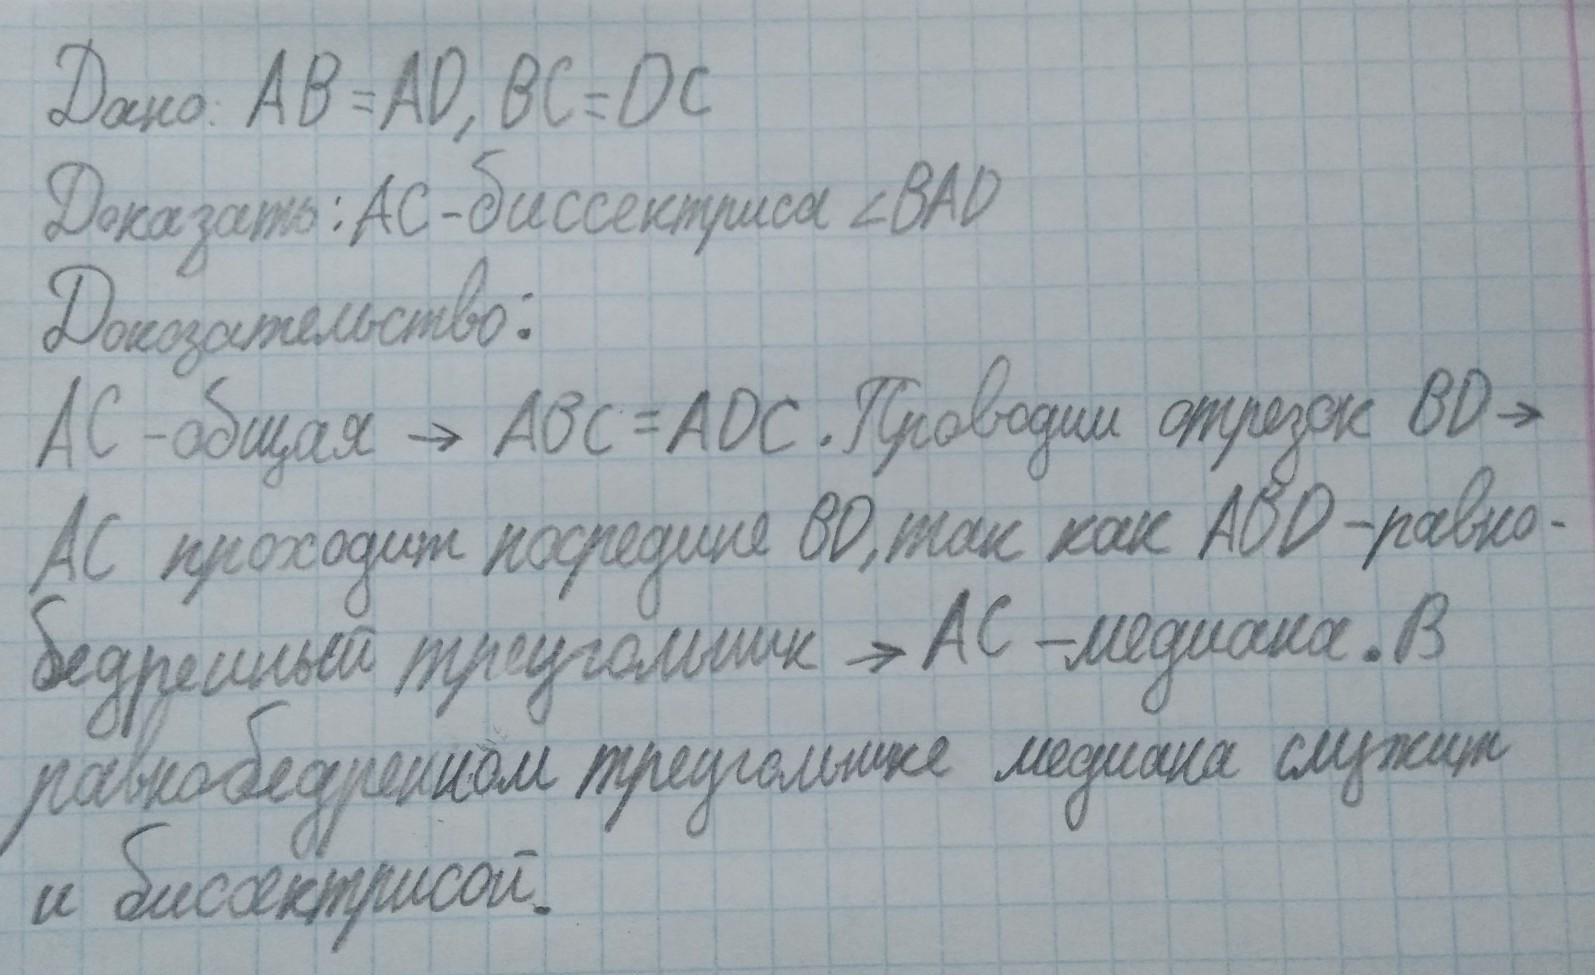 Дано: AB=AD, BC=DC
Доказать: AC-биссектриса ∠BAD
Доказательство:
AC-общая → ABC=ADC. Проводим отрезок BD→
AC проходит посредине BD, так как ABD-равно-
бедренный треугольник → AC-медиана. В
равнобедренном треугольнике медиана служит
и биссектрисой.